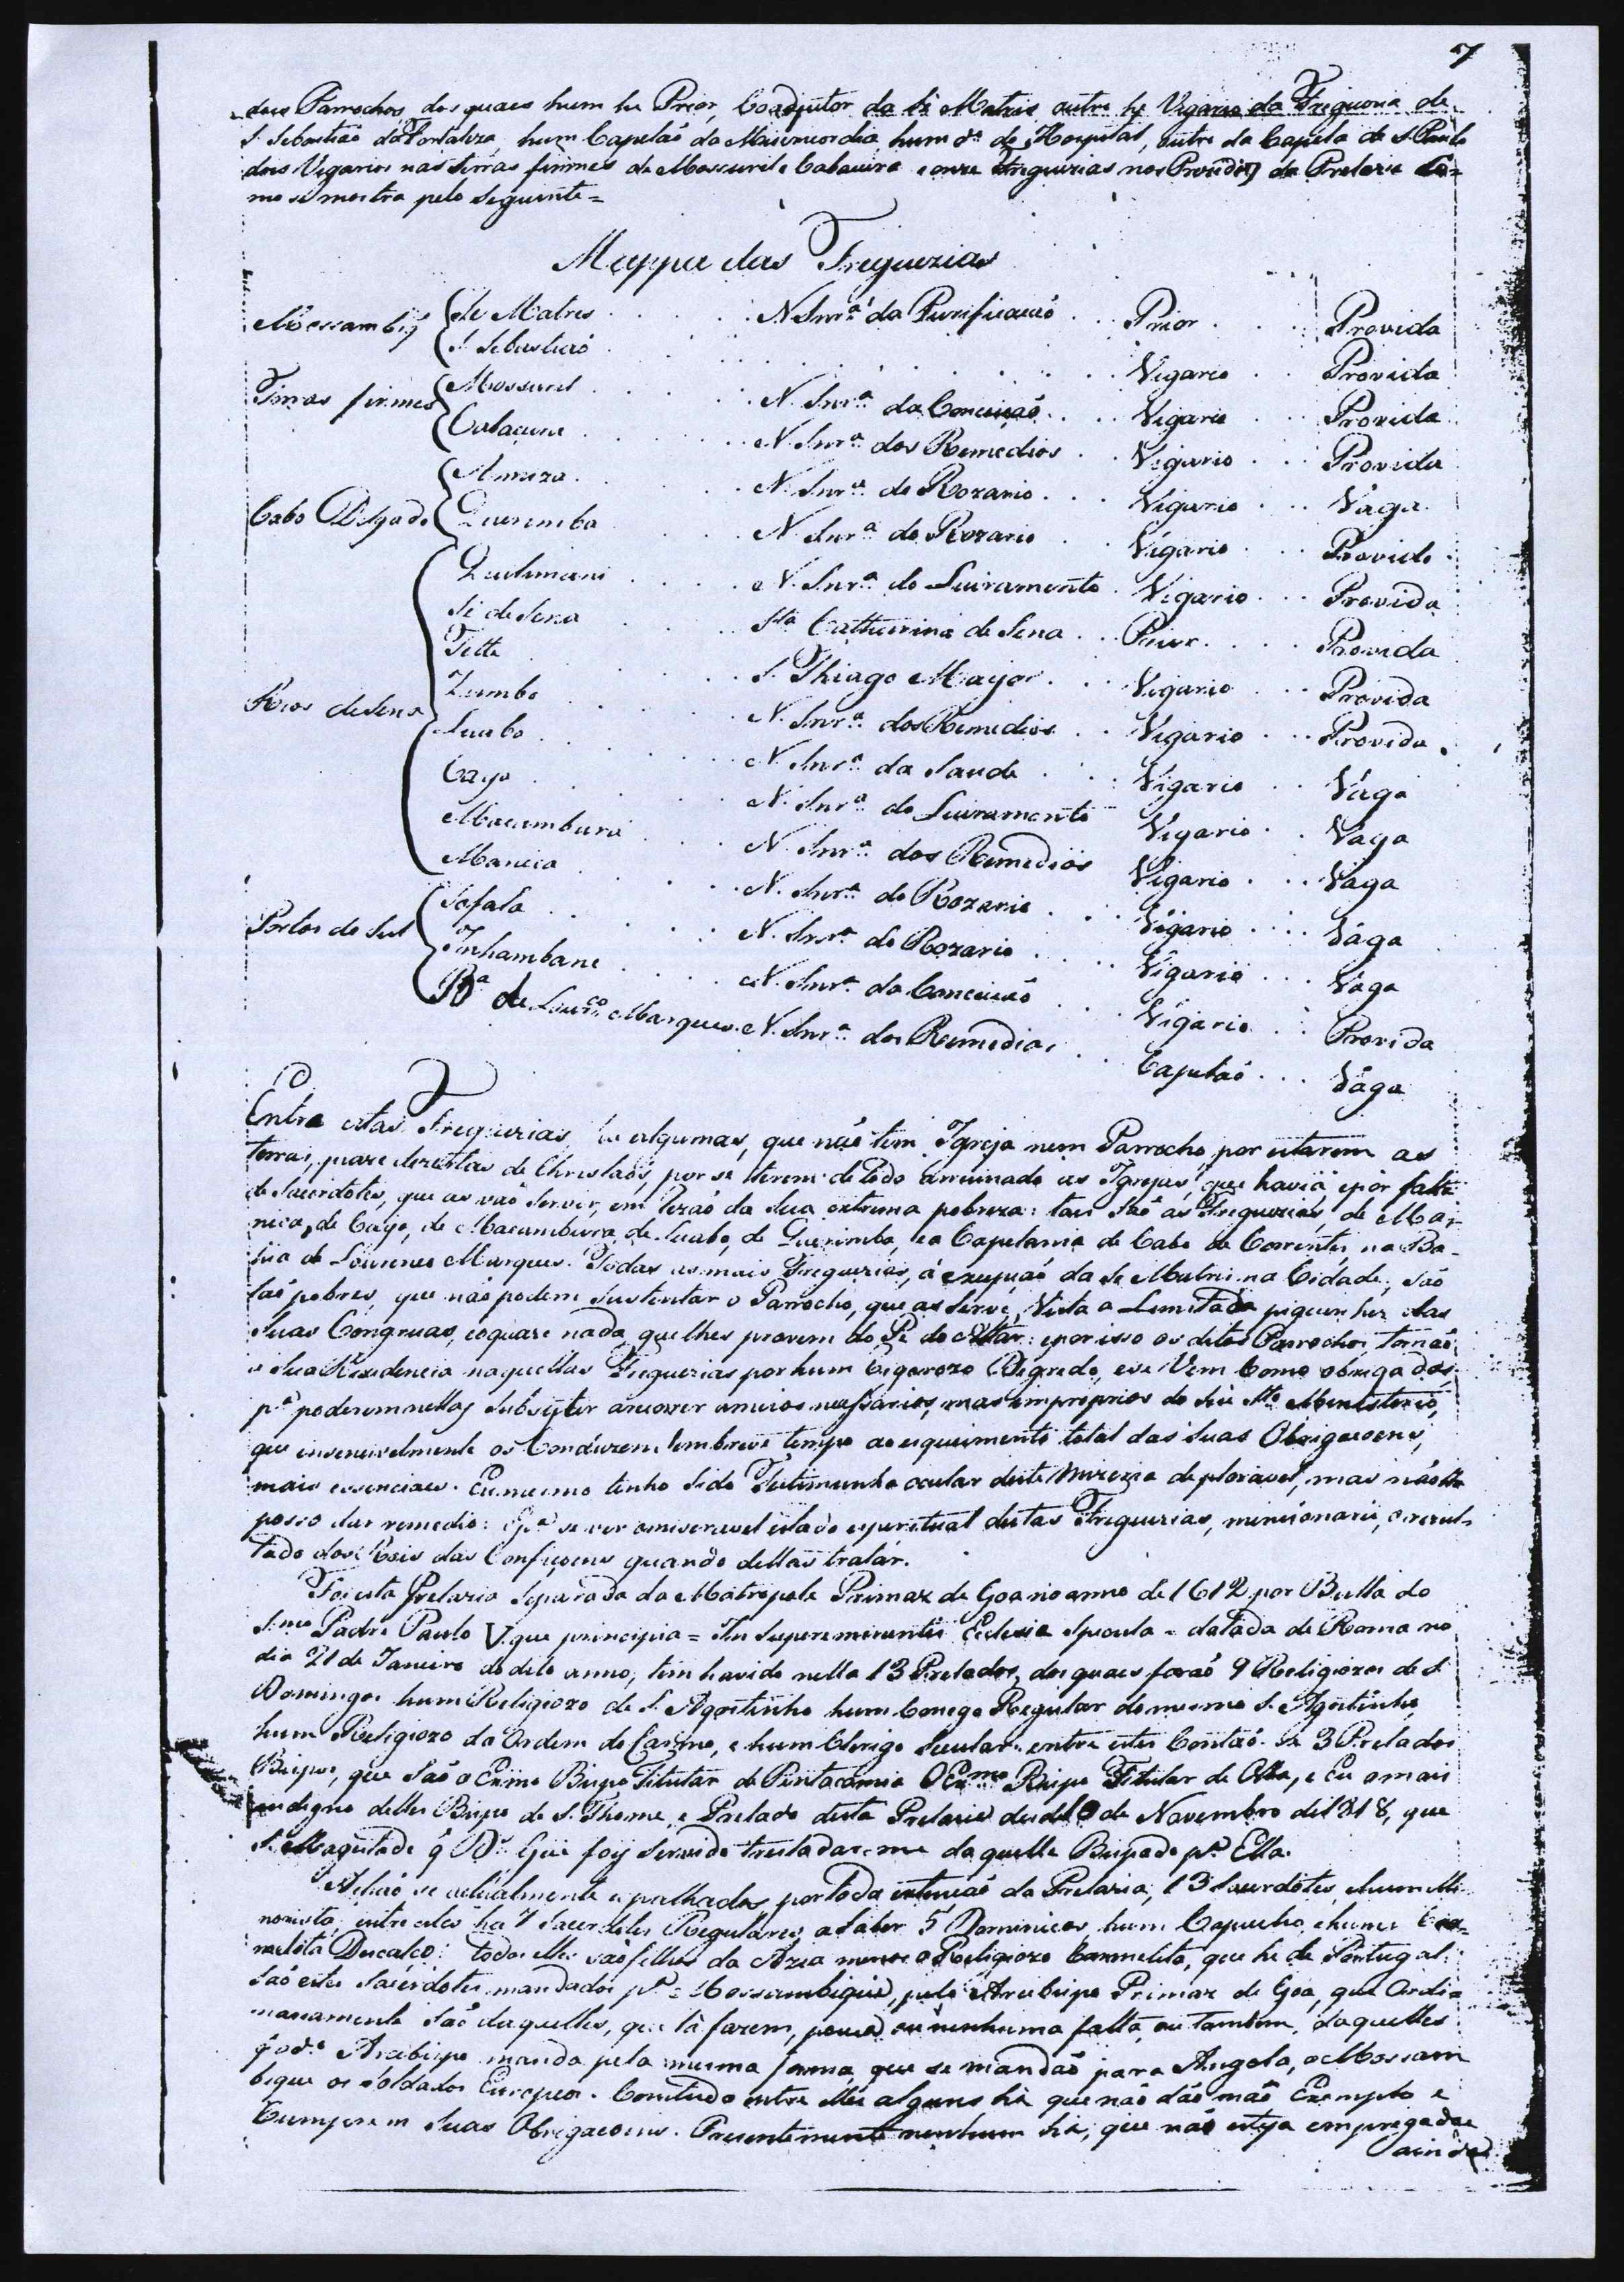 7
dous Parrochos, dos quaes hum he Prior, Coadjutor da Sé Matris outro he Vigario da Freguezia de
S. Sebastiaõ da Fortaleza, hum Capelaõ da Mizericordia, hum dº do Hospital, outro da Capela de S. Paulo
dois Vigarios nas terras firmes de Mossuril e Cabaceira e onze Freguezias nos da Prelazia Co=
mo se mostra pelo Seguinte=
Mappa das Freguezias
Mossambiq̃ Sé Matris . . . N. Snrª da Purificaçaõ . . Prior . . . Provida
S. Sebastiaõ . . . Vigario . . Provida
Terras firmes Mossuril . . . N. Snrª da Conceiçaõ . . Vigario . . Provida
Cabaceira . . . N. Snrª dos Remedios . . Vigario . . Provida
Cabo Delgado Amiza . . . N. Snrª do Rozario . . Vigario . . Vaga
Querimba . . . N. Snrª do Rozario . . Vigario . . Provido
Rios de Sena Quelimani . . . N. Snrª do Livramento . Vigario . . Provida
Sé de Sena . . . Sta Catherina de Sena . . Prior . . . Provida
Tette . . . S. Thiago Mayor . . Vigario . . Provida
Zumbo . . . N. Snrª dos Remedios . . Vigario . . Provida
Luabo . . . N. Snrª da Saude . . Vigario . . Vaga
Caya . . . N. Snrª do Livramento Vigario . . Vaga
Macambura . . . N. Snrª dos Remedios Vigario . . Vaga
Manica . . . N. Snrª do Rozario . . Vigario . . Vaga
Portos do Sul Sofala . . . N. Snrª do Rozario . . Vigario . . Vaga
Inhambane . . . N. Snrª da Conceicaõ . . Vigario . . Provida
Bª de Lourcº Marques . N. Snrª dos Remedios . . Capelaõ . . . Vaga
Entre estas Freguezias ha algumas, que naõ tem Igreja nem Parrocho, por estarem as
terras, quaze dezertas de Christaõs, por se terem de todo arruinado as Igrejas, que havia, e por falta
de Sacerdotes, que as vaõ Servir, em Rezaõ da Sua extrema pobreza: taes Saõ as Freguezias, de Ma-
nica, de Caya, de Macambura, de Luabo, de Querimba, e a Capelania de Cabo de Correntes, na Ba-
hia de Lourenço Marques. Todas as mais Freguezias, á excepçaõ da Sé Matriz na Cidade, Saõ
taõ pobres, que naõ podem Sustentar o Parrocho, que as Serve, Vista a Limitada piquenhez das
Suas Congruas, e o quaze nada, que lhes provem do Pé do Altar: e por isso os ditos Parrochos tomaõ
a Sua Rezidencia naquellas Freguezias por hum Rigorozo Degredo, e se Vem Como obrigados,
pª poderem nellas Subsistir a recorrer a meios nessarios, mas improprios do Seu Sto Ministerio,
que insensivelmente os Conduzem em breve tempo ao esquecimento total das Suas Obrigacoens,
mais essenciaes. Eu mesmo tenho Sido Testimunha ocular desta mizeria deploravel, mas naõ lhe
posso dar remedio: E pª se ver o miseravel estado espiritual destas Freguezias, mencionarei, o rezul-
tado dos Róis das Confiçoens quando dellas tratar.
Foi esta Prelazia Separada da Metropole Primaz de Goa no anno de 1612 por Bulla do
S.mo Padre Paulo V. que principia = In Supereminenti Eclesie Specula - datada de Roma no
dia 21 de Janeiro do dito anno, tem havido nella 13 Prelados, dos quaes foraõ 9 Religiozos de S.
Domingos hum Religiozo de S. Agostinho hum Conego Regular do mesmo S. Agostinho,
hum Religiozo da Ordem do Carmo, e hum Clerigo Secular: entre estes Contaõ-se 3 Prelados
Bispos, que Saõ o Exmo Bispo Titular de Pentacomia O Ex.mo Bispo Titular de Olba, e Eu o mais
indigno delles Bispo de S. Thome, e Prelado desta Prelazia desde de Novembro de 1818, que
S. Magestade q̃ D.s Gue foy Servido trasladar-me daquelle Bispado pª Ella.
Achaõ se actualmente espalhados por toda extençaõ da Prelazia, 13 Sacerdotes, e hum Mi-
norista, entre estes ha 7 Sacerdotes Regulares, a Saber 5 Dominicos, hum Capucho, e hum Car-
melita Descalço: todos elles saõ filhos da Azia menos o Religiozo Carmelita, que he de Portugal:
Saõ estes Sacerdotes mandados pª Mossambique, pelo Arcebispo Primaz de Goa, que Ordi-
nariamente Saõ daquelles, que lá fazem, pouca ou nenhuma falta, ou tambem, daquelles
q̃ o dº Arcebispo manda pela mesma forma, que se mandaõ para Angola, e Mossam
bique os Soldados Europeos. Comtudo entre elles alguns há que naõ daõ maõ Exemplo e
Cumprem Suas Obrigacoens. Prezentemente nenhum há, que naõ esteja empregado e
ainda